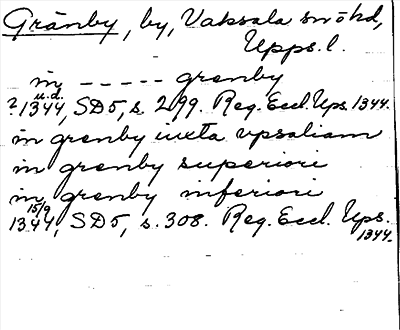 Gränby, by, Vaksala snöhd,
Upps. l.
in ----- grenby
u.d.
? 1344, SD5, s. 299. Reg. Eccl. Ups. 1344.
in grenby iuxta vpsaliam
in grenby superiori
in grenby inferiori
15/9
1344, SD5, s. 308. Reg. Eccl. Ups.
1344.